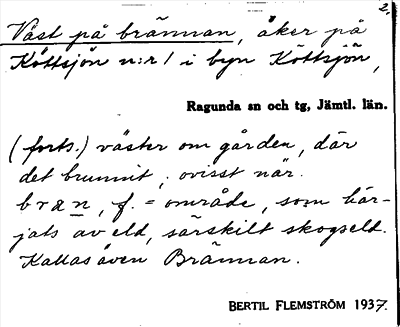 2.
Väst på brännan, åker på
Köttsjön n:r 1 i byn Köttsjön,
Ragunda sn och tg, Jämtl. län.
(forts.) väster om gården, där
det brunnit, ovisst när.
bran, f. = område, som här-
jats av eld, särskilt skogseld.
Kallas även Brännan.
BERTIL FLEMSTRÖM 1937.